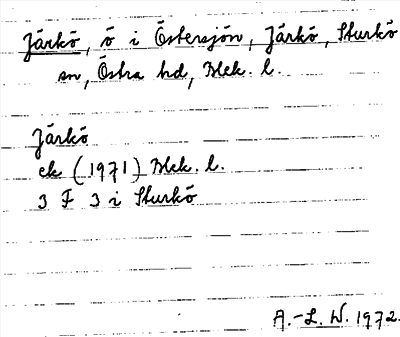 Järkö, ö i Östersjön, Järkö, Sturkö
sn, Östra hd, Blek. l.
Järkö
ek (1971) Blek. l.
3 F 3 i Sturkö
A.-L. W. 1972.